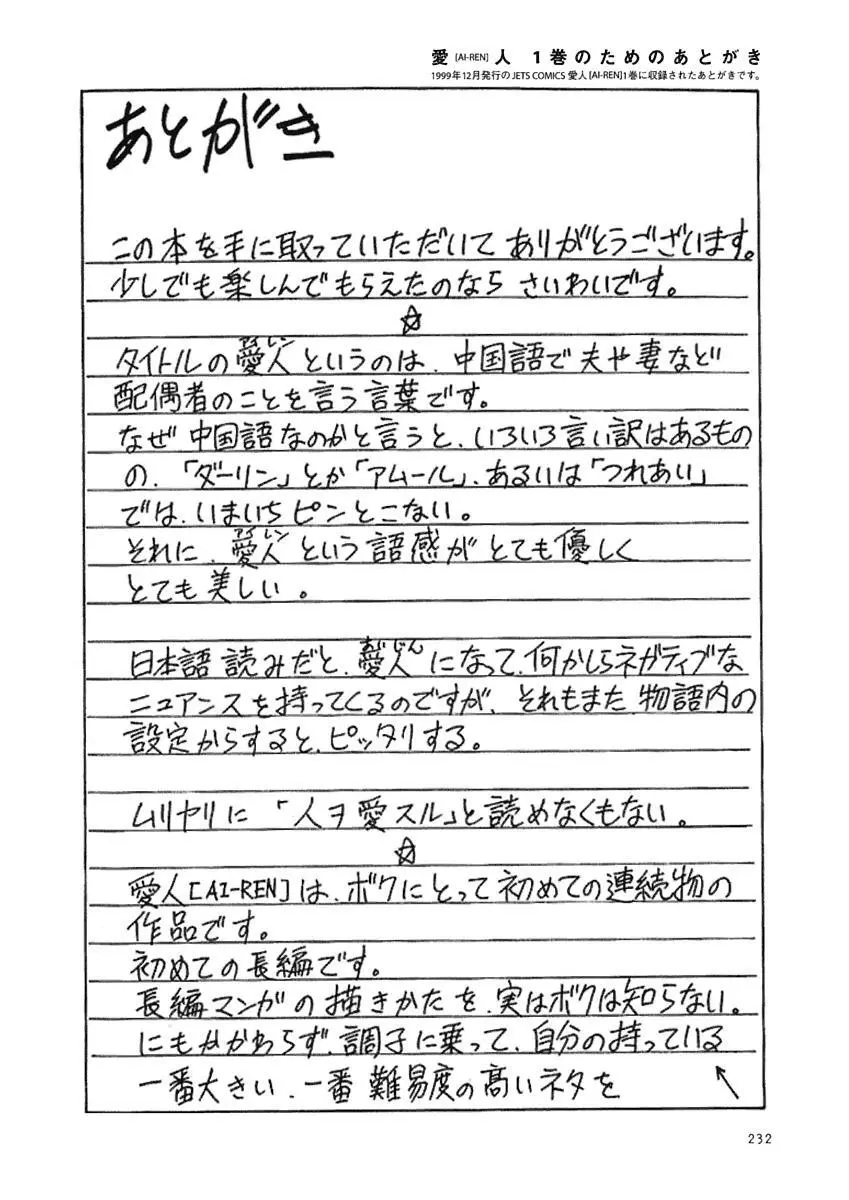 愛[AI-REN]人 1巻のためのあとがき
1999年12月発行のJETS COMICS 愛人[AI-REN]1巻に収録されたあとがきです。
あとがき
この本を手に取っていただいて ありがとうございます。
少しでも楽しんでもらえたのなら さいわいです。
☆
タイトルの愛人というのは、中国語で夫や妻など
配偶者のことを言う言葉です。
なぜ中国語なのかと言うと、いろいろ言い訳はあるもの
の、「ダーリン」とか「アムール」、あるいは「つれあい」
では、いまいちピンとこない。
それに、愛人という語感がとても優しく
とても美しい。
日本語読みだと、愛人になって、何かしらネガティブな
ニュアンスを持ってくるのですが、それもまた物語内の
設定からすると、ピッタリする。
ムリヤリに「人ヲ愛スル」と読めなくもない。
☆
愛人[AI-REN]は、ボクにとって初めての連続物の
作品です。
初めての長編です。
長編マンガの描きかたを、実はボクは知らない。
にもかかわらず、調子に乗って、自分の持っている
一番大きい、一番難易度の高いネタを
232